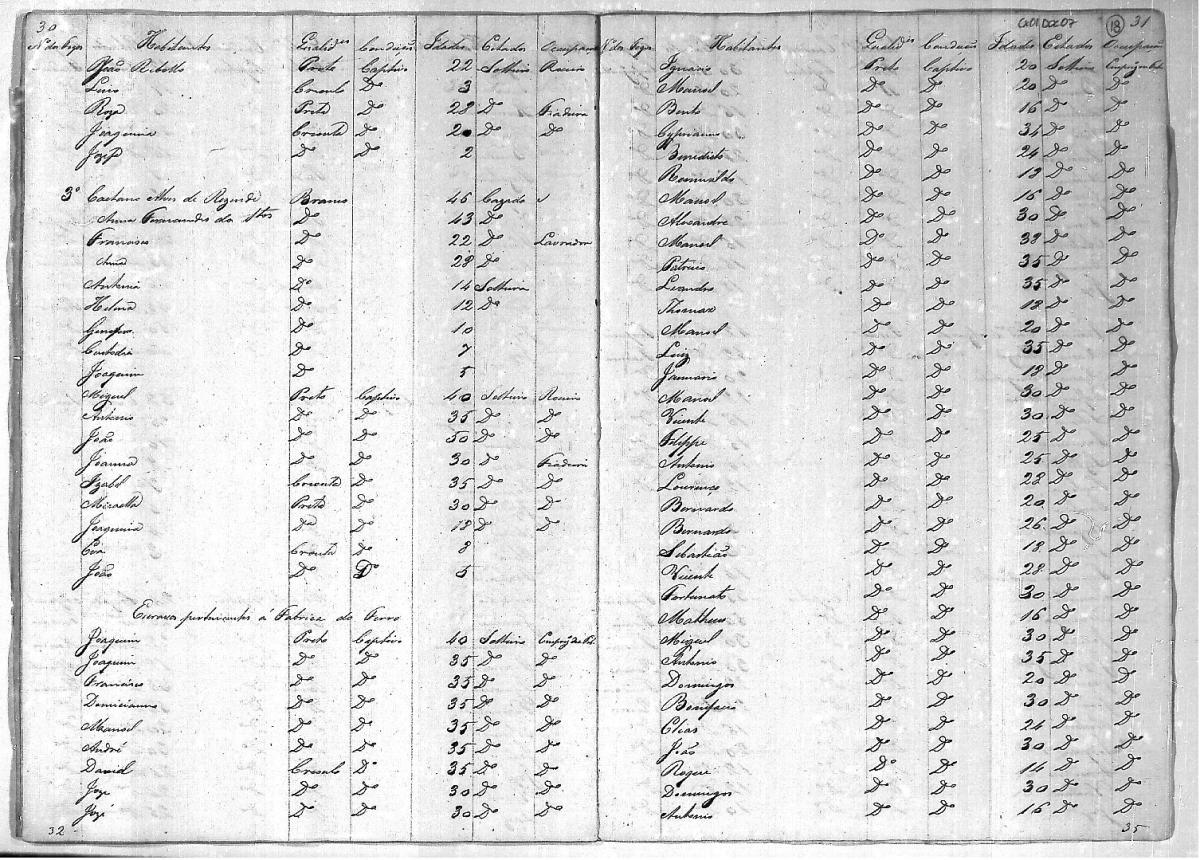 30
Nº dos Fogos Habitantes Qualid.es Condição Idades Estados Ocupação
João Rebollo Preto Captivo 22 Solteiro Roceiro
Crioulo Dº 3
Roza Preta Dº 28 Dº Fiadeira
Joaquina Crioula Dº 20 Dº Dº
Dº Dº 2
3º Caetano Alves de Rezende Branco 46 Cazado
Anna Fernandes dos Stos Dº 43 Dº
Francisco Dº 22 Dº Lavrador
Anna Dº 28 Dº
Antonia Dº 14 Solteira
Helena Dº 12 Dº
Dº 10
Custodia Dº 7
Joaquim Dº 5
Miguel Preto Captivo 40 Solteiro Roceiro
Antonio Dº Dº 35 Dº Dº
João Dº Dº 50 Dº Dº
Joanna Dº Dº 30 Dº Fiadeira
Izabel Crioula Dº 35 Dº Dº
Preta Dº 30 Dº Dº
Joaquina Dº Dº 18 Dº Dº
Eva Crioula Dº 8
João Dº Dº 5
Escravos pertencentes á Fabrica do Ferro
Joaquim Preto Captivo 40 Solteiro
Joaquim Dº Dº 35 Dº Dº
Francisco Dº Dº 35 Dº Dº
Domiciano Dº Dº 35 Dº Dº
Manoel Dº Dº 35 Dº Dº
André Dº Dº 35 Dº Dº
David Creoulo Dº 35 Dº Dº
Joze Dº Dº 30 Dº Dº
José Dº Dº 30 Dº Dº
32
18 31
Nº dos Fogos Habitantes Qualid.es Condição Idades Estados Ocupação
Ignacio Preto Captivo 20 Solteiro
Manoel Dº Dº 20 Dº Dº
Bento Dº Dº 16 Dº Dº
Cypriano Dº Dº 34 Dº Dº
Benedicto Dº Dº 24 Dº Dº
Romualdo Dº Dº 19 Dº Dº
Manoel Dº Dº 16 Dº Dº
Alexandre Dº Dº 30 Dº Dº
Manoel Dº Dº 38 Dº Dº
Patricio Dº Dº 35 Dº Dº
Leandro Dº Dº 35 Dº Dº
Thomaz Dº Dº 18 Dº Dº
Manoel Dº Dº 20 Dº Dº
Luiz Dº Dº 35 Dº Dº
Januario Dº Dº 19 Dº Dº
Manoel Dº Dº 30 Dº Dº
Vicente Dº Dº 30 Dº Dº
Filippe Dº Dº 25 Dº Dº
Antonio Dº Dº 25 Dº Dº
Lourenço Dº Dº 28 Dº Dº
Bernardo Dº Dº 20 Dº Dº
Bernardo Dº Dº 26 Dº Dº
Sebastião Dº Dº 18 Dº Dº
Vicente Dº Dº 28 Dº Dº
Fortunato Dº Dº 30 Dº Dº
Matheus Dº Dº 16 Dº Dº
Miguel Dº Dº 30 Dº Dº
Antonio Dº Dº 35 Dº Dº
Domingos Dº Dº 20 Dº Dº
Bonifacio Dº Dº 30 Dº Dº
Elias Dº Dº 24 Dº Dº
João Dº Dº 30 Dº Dº
Roque Dº Dº 14 Dº Dº
Domingos Dº Dº 30 Dº Dº
Antonio Dº Dº 16 Dº Dº
35